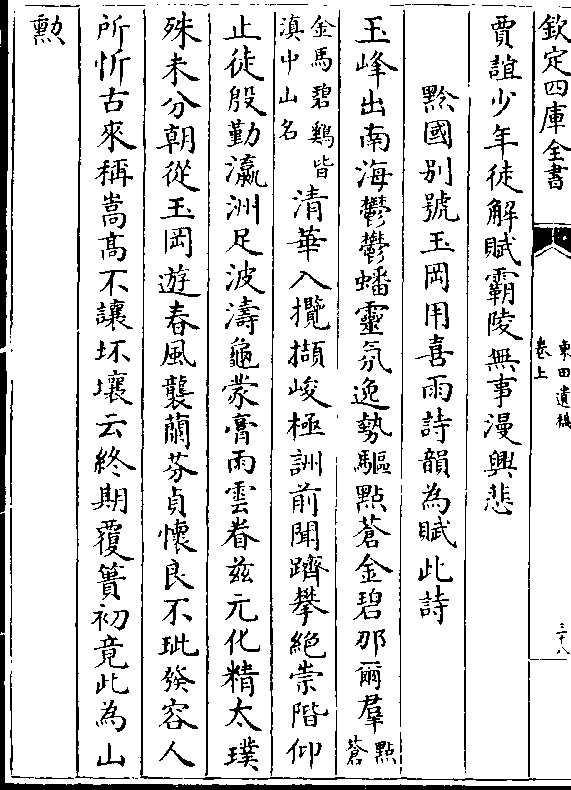 欽定四庫全書
東田遺稿
卷上
三十八
賈誼少年徒解賦霸陵無事漫興悲
黔國别號玉岡用喜雨詩韻為賦此詩
玉峰出南海鬱鬱蟠靈氛逸勢驅點蒼金碧那爾羣點蒼
金馬碧鷄皆滇中山名清華入攬擷峻極詶前聞躋攀絶崇階仰
止徒殷勤瀛洲足波濤龜蒙膏雨雲眷兹元化精太璞
殊未分朝從玉岡遊春風襲蘭芬貞懐良不玼發容人
所忻古來稱嵩髙不讓坏壤云終期覆簣初竟此為山
勲